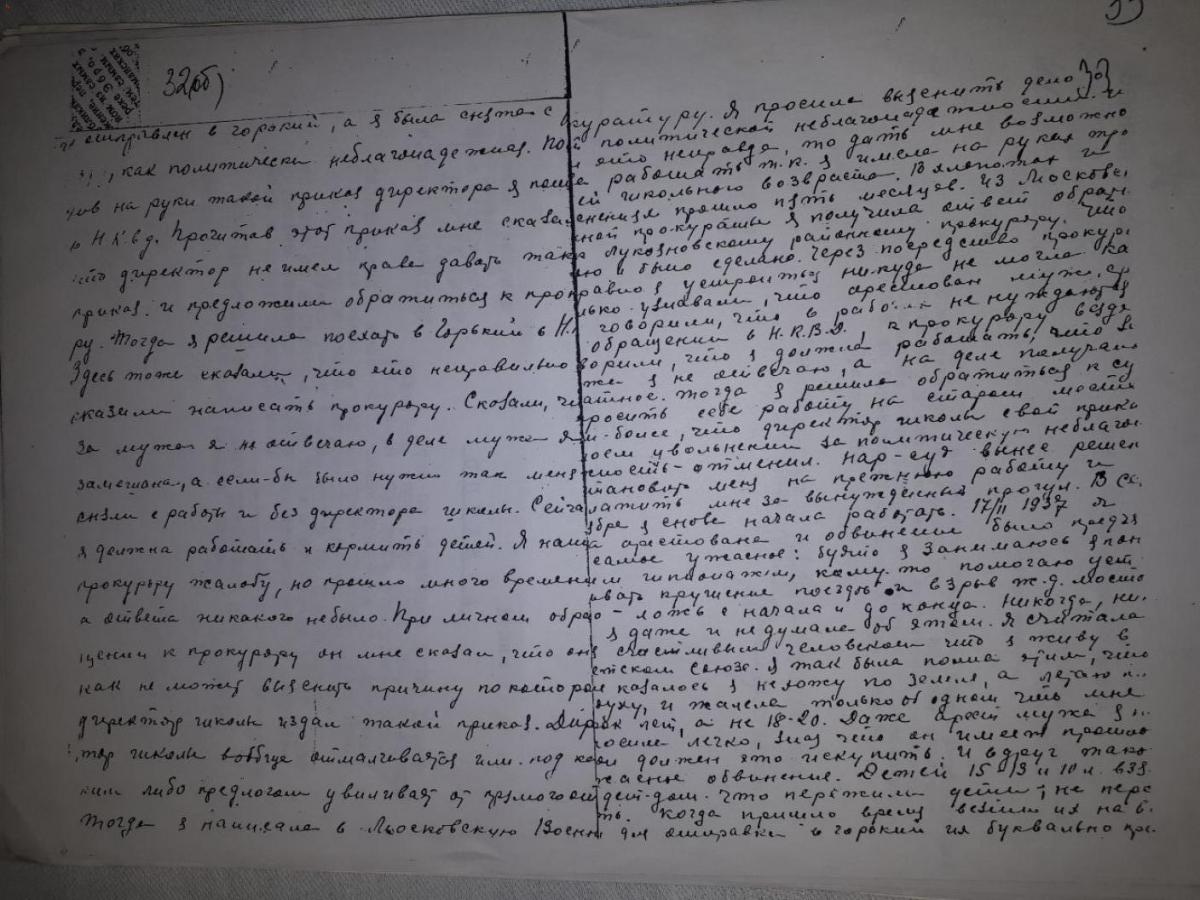 32(об)
отправлен в Горький, а я была снята с
как политически неблагонадежная. Полу
чив на руки такой приказ директора я пошла
в Н.К.В.Д. Прочитав этот приказ мне сказали
что директор не имел права давать такой
приказ. и предложили обратиться к прокуро
ру. Тогда я решила поехать в Горький в Н.
Здесь тоже сказали, что это неправильно
сказали написать прокурору. Сказали, что
за мужа я не отвечаю, в деле мужа я не
замешана, а если-бы было нужно так меня
сняли с работы и без директора школы. Сейчас
я должна работать и кормить детей. Я написала
прокурору жалобу, но прошло много времени
а ответа никакого небыло. При личном обра
щении к прокурору он мне сказал, что он
как не может выяснить причину по которой
директор школы издал такой приказ. Дирек
тор школы вообще отмалчивается или под ка
ким либо предлогом увиливает от прямого
Тогда я написала в Московскую Военн
33
куратуру. Я просила выяснить дело
политической неблагонадежности и
это неправда, то дать мне возможно
работать т.к. я имела на руках тро
школьного возраста. В хлопотах и
прошло пять месяцев. Из Московск
ной прокуратуры я получила ответ обрат
Лукояновскому районному прокурору. Что
и было сделано. Через посредство прокур
устроиться никуда не могла ка
узнавали, что арестован муж, ср
говорили, что в работе не нуждаются
обращении в Н.К.В.Д., к прокурору везде
ворили, что я должна работать, что за
же я не отвечаю, а на деле получало
атное. Тогда я решила обратиться к су
просить себе работу на старом месте
более, что директор школы свой прика
моем увольнении за политическую неблаго
ность-отменил. Нар-суд вынес решен
становить меня на прежнюю работу и
латить мне за вынужденный прогул. В се
бре я снова начала работать. 17/II 1937 я
арестована и обвинение было предъя
самое ужасное: будто я занимаюсь япон
шпионажем, кому-то помогаю уст
ивать крушение поездов и взрыв ж.д. мосто
ложь с начала и до конца. Никогда, ни
я даже и не думала об этом. Я считала
счастливым человеком что я живу в
етском союзе. Я так была полна этим, что
казалось я не хожу по земле, а летаю
духу, и жалела только об одном что мне
лет, а не 18-20. Даже арест мужа я п
осила легко, зная что он имеет прошло
должен это искупить. И вдруг тако
жасное обвинение. Детей 15 13 и 10 л. взя
дет-дом. Что пережили дети, не пере
ть. Когда пришло время везти их на в
для отправки в Горький их буквально